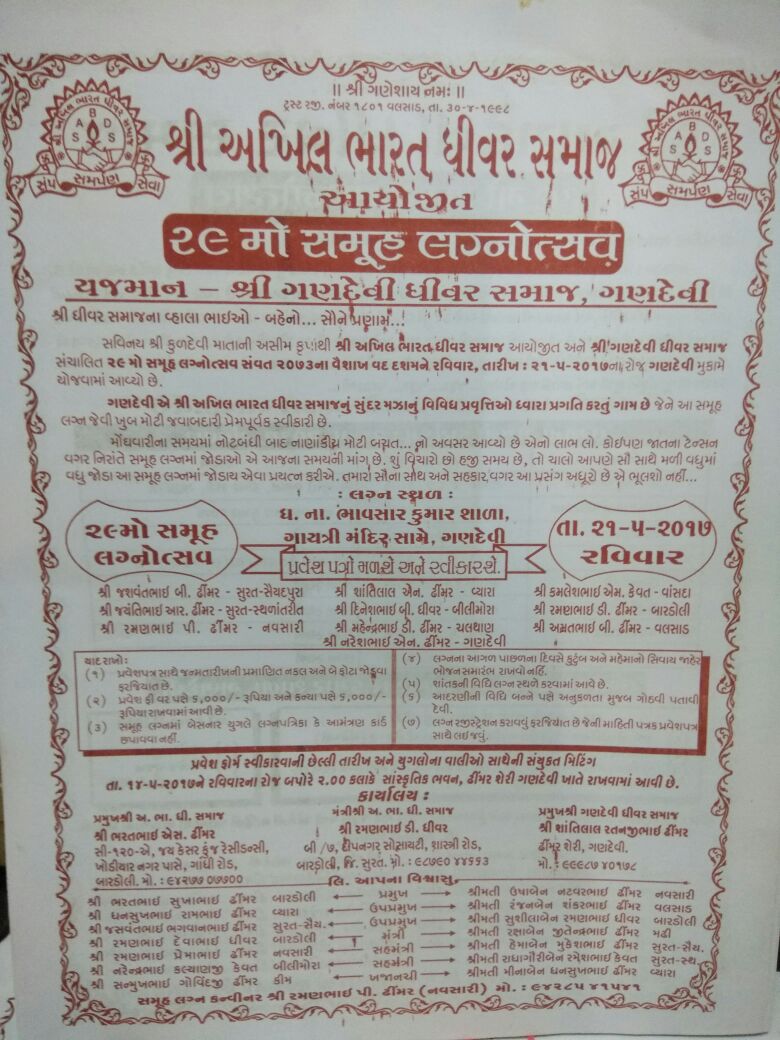 || શ્રી ગણેશાય નમઃ ||
ટ્રસ્ટ રજી. નંબર ૧૮૦૧ વલસાડ, તા. ૩૦-૪-૧૯૯૮
શ્રી અખિલ ભારત ધીવર સમાજ
શ્રી અખિલ ભારત ધીવર સમાજ
A B D S S
સંપ સમર્પણ સેવા
શ્રી અખિલ ભારત ધીવર સમાજ
A B D S S
સંપ સમર્પણ સેવા
આયોજીત
૨૯ મો સમૂહ લગ્નોત્સવ
યજમાન – શ્રી ગણદેવી ધીવર સમાજ, ગણદેવી
શ્રી ધીવર સમાજના વ્હાલા ભાઈઓ - બહેનો... સૌને પ્રણામ...
સવિનય શ્રી કુળદેવી માતાની અસીમ કૃપાથી શ્રી અખિલ ભારત ધીવર સમાજ આયોજીત અને શ્રી ગણદેવી ધીવર સમાજ
સંચાલિત ૨૯ મો સમૂહ લગ્નોત્સવ સંવત ૨૦૭૩ના વૈશાખ વદ દશમને રવિવાર, તારીખ : ૨૧-૫-૨૦૧૭ના રોજ ગણદેવી મુકામે
યોજવામાં આવ્યો છે.
ગણદેવી એ શ્રી અખિલ ભારત ધીવર સમાજનું સુંદર મઝાનું વિવિધ પ્રવૃત્તિઓ ધ્વારા પ્રગતિ કરતું ગામ છે જેને આ સમૂહ
લગ્ન જેવી ખુબ મોટી જવાબદારી પ્રેમપૂર્વક સ્વીકારી છે.
મોંઘવારીના સમયમાં નોટબંધી બાદ નાણાંકીય મોટી બચત... નો અવસર આવ્યો છે એનો લાભ લો. કોઈપણ જાતના ટેન્સન
વગર નિરાંતે સમૂહ લગ્નમાં જોડાઓ એ આજના સમયની માંગ છે. શું વિચારો છો હજી સમય છે, તો ચાલો આપણે સૌ સાથે મળી વધુમાં
વધુ જોડા આ સમૂહ લગ્નમાં જોડાય એવા પ્રયત્ન કરીએ. તમારા સૌના સાથ અને સહકાર વગર આ પ્રસંગ અધૂરો છે એ ભૂલશો નહીં...
: લગ્ન સ્થળ :
ધ. ના. ભાવસાર કુમાર શાળા,
ગાયત્રી મંદિર સામે, ગણદેવી
૨૯મો સમૂહ
લગ્નોત્સવ
તા. ૨૧-૫-૨૦૧૭
રવિવાર
પ્રવેશ પત્રો મળશે અને સ્વીકારશે.
શ્રી જશવંતભાઈ બી. ઢીંમર - સુરત-સૈયદપુરા શ્રી શાંતિલાલ એન. ઢીંમર - વ્યારા શ્રી કમલેશભાઈ એમ. કેવત - વાંસદા
શ્રી જયંતિભાઈ આર. ઢીંમર - સુરત-સ્થળાંતરીત શ્રી દિનેશભાઈ બી. ધીવર - બીલીમોરા શ્રી રમણભાઈ ડી. ઢીંમર - બારડોલી
શ્રી રમણભાઈ પી. ઢીંમર - નવસારી શ્રી મહેન્દ્રભાઈ ડી. ઢીંમર - ચલથાણ શ્રી અમ્રતભાઈ બી. ઢીંમર - વલસાડ
શ્રી નરેશભાઈ એન. ઢીંમર - ગણદેવી
યાદ રાખો :
(૧) પ્રવેશપત્ર સાથે જન્મતારીખની પ્રમાણિત નકલ અને બે ફોટા જોડવા
ફરજિયાત છે.
(૨) પ્રવેશ ફી વર પક્ષે ૬,૦૦૦/- રૂપિયા અને કન્યા પક્ષે ૬,૦૦૦/-
રૂપિયા રાખવામાં આવી છે.
(૩) સમૂહ લગ્નમાં બેસનાર યુગલે લગ્નપત્રિકા કે આમંત્રણ કાર્ડ
છપાવવા નહીં.
(૪) લગ્નના આગળ પાછળના દિવસે કુટુંબ અને મહેમાનો સિવાય જાહેર
ભોજન સમારંભ રાખવો નહીં.
(૫) શાંતકની વિધિ લગ્ન સ્થળે કરવામાં આવે છે.
(૬) આદરણીની વિધિ બન્ને પક્ષે અનુકળતા મુજબ ગોઠવી પતાવી
દેવી.
(૭) લગ્ન રજીસ્ટ્રેશન કરાવવું ફરજિયાત છે જેની માહિતી પત્રક પ્રવેશપત્ર
સાથે લઈ જવું.
પ્રવેશ ફોર્મ સ્વીકારવાની છેલ્લી તારીખ અને યુગલોના વાલીઓ સાથેની સંયુકત મિટિંગ
તા. ૧૪-૫-૨૦૧૭ને રવિવારના રોજ બપોરે ૨.૦૦ કલાકે સાંસ્કૃતિક ભવન, ઢીંમર શેરી ગણદેવી ખાતે રાખવામાં આવી છે.
કાર્યાલય :
પ્રમુખશ્રી અ. ભા. ધી. સમાજ
શ્રી ભરતભાઈ એસ. ઢીંમર
સી-૧૨૦-એ, જય કેસર કુંજ રેસીડન્સી,
ખોડીયાર નગર પાસે, ગાંધી રોડ,
બારડોલી. મો. : ૯૪૨૭૭ ૦૭૭૦૦
મંત્રીશ્રી અ. ભા. ધી. સમાજ
શ્રી રમણભાઈ ડી. ધીવર
બી /૭, દીપનગર સોસાયટી, શાસ્ત્રી રોડ,
બારડોલી, જિ. સુરત. મો. : ૯૮૭૯૦ ૪૪૬૬૩
પ્રમુખશ્રી ગણદેવી ધીવર સમાજ
શ્રી શાંતિલાલ રતનજીભાઈ ઢીંમર
ઢીંમર શેરી, ગણદેવી.
મો. : ૯૯૯૮૭ ૪૦૧૭૮
લિ. આપના વિશ્વાસુ,
શ્રી ભરતભાઈ સુખાભાઈ ઢીંમર બારડોલી પ્રમુખ શ્રીમતી ઉષાબેન નટવરભાઈ ઢીંમર નવસારી
શ્રી ધનસુખભાઈ રામભાઈ ઢીંમર વ્યારા ઉપપ્રમુખ શ્રીમતી રંજનબેન શંકરભાઈ ઢીંમર વલસાડ
શ્રી જસવંતભાઈ ભગવાનભાઈ ઢીંમર સુરત-સૈય. ઉપપ્રમુખ શ્રીમતી સુશીલાબેન રમણભાઈ ધીવર બારડોલી
શ્રી રમણભાઈ દેવાભાઈ ધીવર બારડોલી મંત્રી શ્રીમતી રક્ષાબેન જીતેન્દ્રભાઈ ઢીંમર મઢી
શ્રી રમણભાઈ પ્રેમાભાઈ ઢીંમર નવસારી સહમંત્રી શ્રીમતી હેમાબેન મુકેશભાઈ ઢીંમર સુરત-સૈય.
શ્રી નરેન્દ્રભાઈ કલ્યાણજી કેવત બીલીમોરા સહમંત્રી શ્રીમતી રાધાગૌરીબેન રમેશભાઈ કેવત સુરત-સ્થ.
શ્રી સન્મુખભાઈ ગોવિંદજી ઢીંમર કીમ ખજાનચી શ્રીમતી મીનાબેન ધનસુખભાઈ ઢીંમર વ્યારા
સમૂહ લગ્ન કન્વીનર શ્રી રમણભાઈ પી. ઢીંમર (નવસારી) મો. : ૯૪૨૮૫ ૪૧૫૪૧